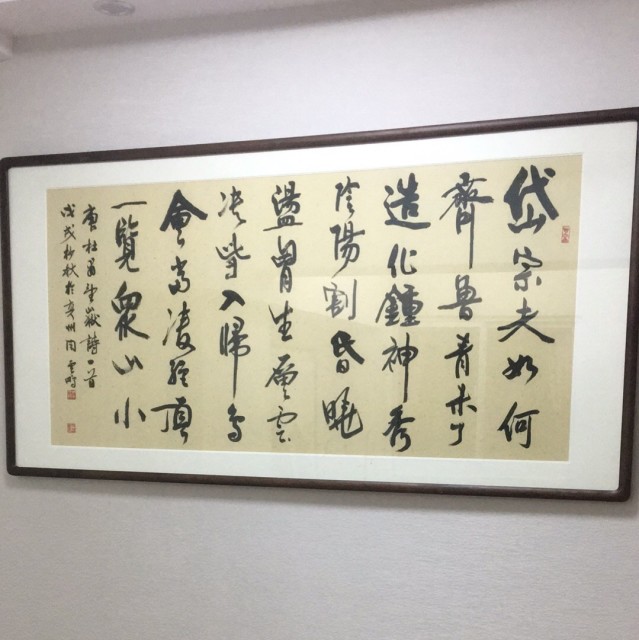 岱宗夫如何
齊魯青未了
造化鍾神秀
陰陽割昏曉
盪胷生層雲
決眥入歸鳥
會當凌絕頂
一覽眾山小
唐杜甫望嶽詩一首
戊戌杪秋於亳州